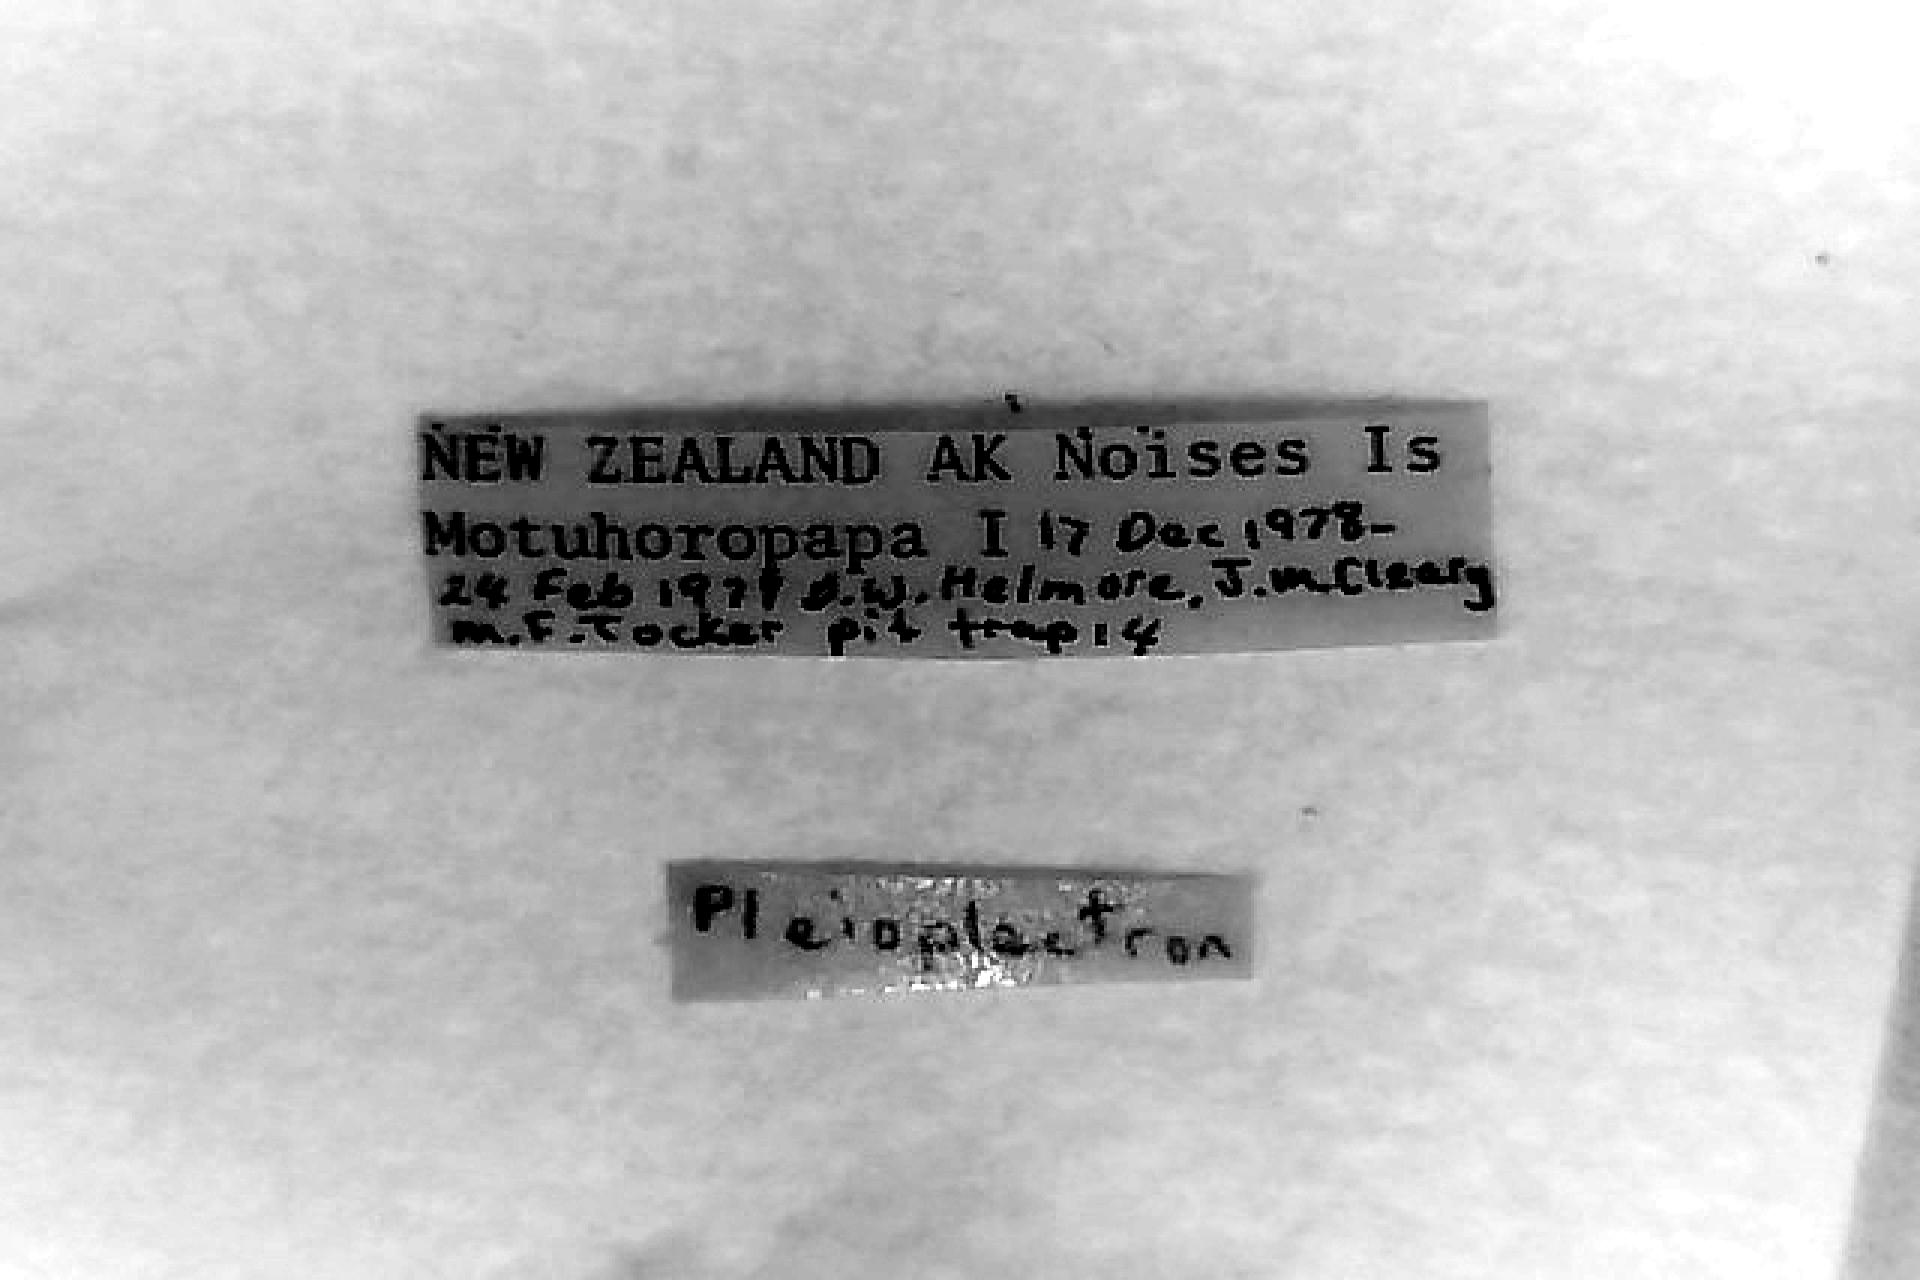 NEW ZEALAND AK Noises Is
Motuhoropapa I 17 Dec 1978-
24 Feb 1979 D.W. Helmore, J.McCleary
M.F.Tocker pit trap 14
Pleioplectron